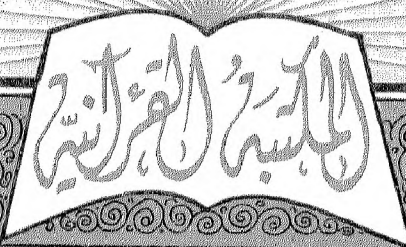 المكتبة القرآنية